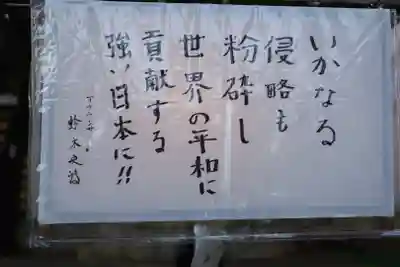 いかなる
侵略も
粉砕し
世界の平和に
貢献する
強い日本に!!
鈴木